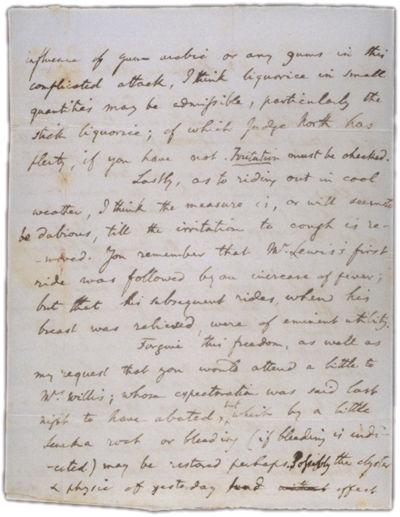 influence of gum arabic or any gums in this
complicated attack, I think liquorice in small
quantities may be admissible, particularly the
stick liquorice; of which Judge North has
plenty, if you have not. Irritation must be checked.
Lastly, as to riding out in cool
weather, I think the measure is, or will seem to
be dubious, till the irritation to cough is re-
-moved. You remember that Mr. Lewis's first
ride was followed by an increase of fever;
but that his subsequent rides, when his
breast was relieved, were of eminent utility.
Forgive this freedom, as well as
my request that you would attend a little to
Willis; whose expectoration was said last
night to have abated; but which by a little
Seneka root or bleeding (if bleeding is indi-
-cated) may be restored perhaps. Possibly the clyster
& physic of yesterday had effect